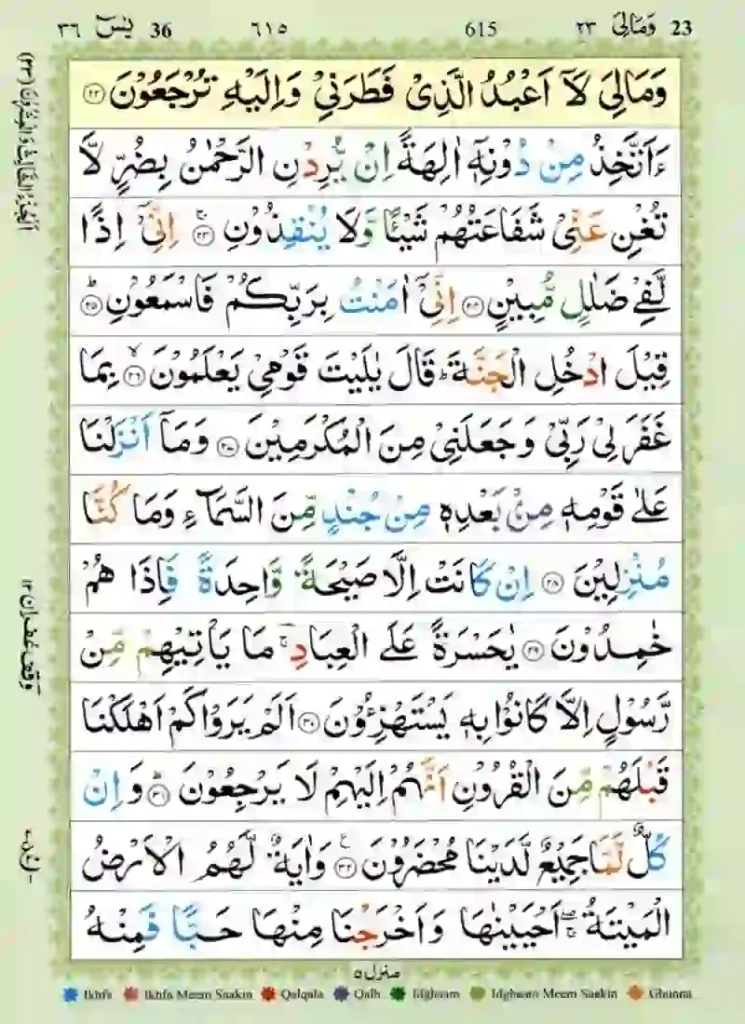 23 وَمَالِیَ ٢٣ 615 ٦١٥ 36 يٰسٓ ٣٦
وَمَالِیَ لَاۤ اَعْبُدُ الَّذِیْ فَطَرَنِیْ وَاِلَیْهِ تُرْجَعُوْنَ ﴿٢٢﴾
ءَاَتَّخِذُ مِنْ دُوْنِهٖۤ اٰلِهَةً اِنْ یُّرِدْنِ الرَّحْمٰنُ بِضُرٍّ لَّا
تُغْنِ عَنِّیْ شَفَاعَتُهُمْ شَیْـًٔا وَّلَا یُنْقِذُوْنِ ﴿٢٣﴾ اِنِّیْۤ اِذًا
لَّفِیْ ضَلٰلٍ مُّبِیْنٍ ﴿٢٤﴾ اِنِّیْۤ اٰمَنْتُ بِرَبِّكُمْ فَاسْمَعُوْنِ ﴿٢٥﴾ؕ
قِیْلَ ادْخُلِ الْجَنَّةَ ؕ قَالَ یٰلَیْتَ قَوْمِیْ یَعْلَمُوْنَ ﴿٢٦﴾ۙ بِمَا
غَفَرَ لِیْ رَبِّیْ وَجَعَلَنِیْ مِنَ الْمُكْرَمِیْنَ ﴿٢٧﴾ وَمَاۤ اَنْزَلْنَا
عَلٰی قَوْمِهٖ مِنْۢ بَعْدِهٖ مِنْ جُنْدٍ مِّنَ السَّمَآءِ وَمَا كُنَّا
مُنْزِلِیْنَ ﴿٢٨﴾ اِنْ كَانَتْ اِلَّا صَیْحَةً وَّاحِدَةً فَاِذَا هُمْ
خٰمِدُوْنَ ﴿٢٩﴾ یٰحَسْرَةً عَلَی الْعِبَادِ ۚ مَا یَاْتِیْهِمْ مِّنْ
رَّسُوْلٍ اِلَّا كَانُوْا بِهٖ یَسْتَهْزِءُوْنَ ﴿٣٠﴾ اَلَمْ یَرَوْا كَمْ اَهْلَكْنَا
قَبْلَهُمْ مِّنَ الْقُرُوْنِ اَنَّهُمْ اِلَیْهِمْ لَا یَرْجِعُوْنَ ﴿٣١﴾ؕ وَاِنْ
كُلٌّ لَّمَّا جَمِیْعٌ لَّدَیْنَا مُحْضَرُوْنَ ﴿٣٢﴾ وَاٰیَةٌ لَّهُمُ الْاَرْضُ
الْمَیْتَةُ ۖۚ اَحْیَیْنٰهَا وَاَخْرَجْنَا مِنْهَا حَبًّا فَمِنْهُ
منزل ٥
Ikhfa Ikhfa Meem Saakin Qalqala Qalb Idghaam Idghaam Meem Saakin Ghunna
اَلْجُزْءُ الثَّالِثُ وَالْعِشْرُوْنَ (٢٣)
وَقْف غُفْرَان ١٢